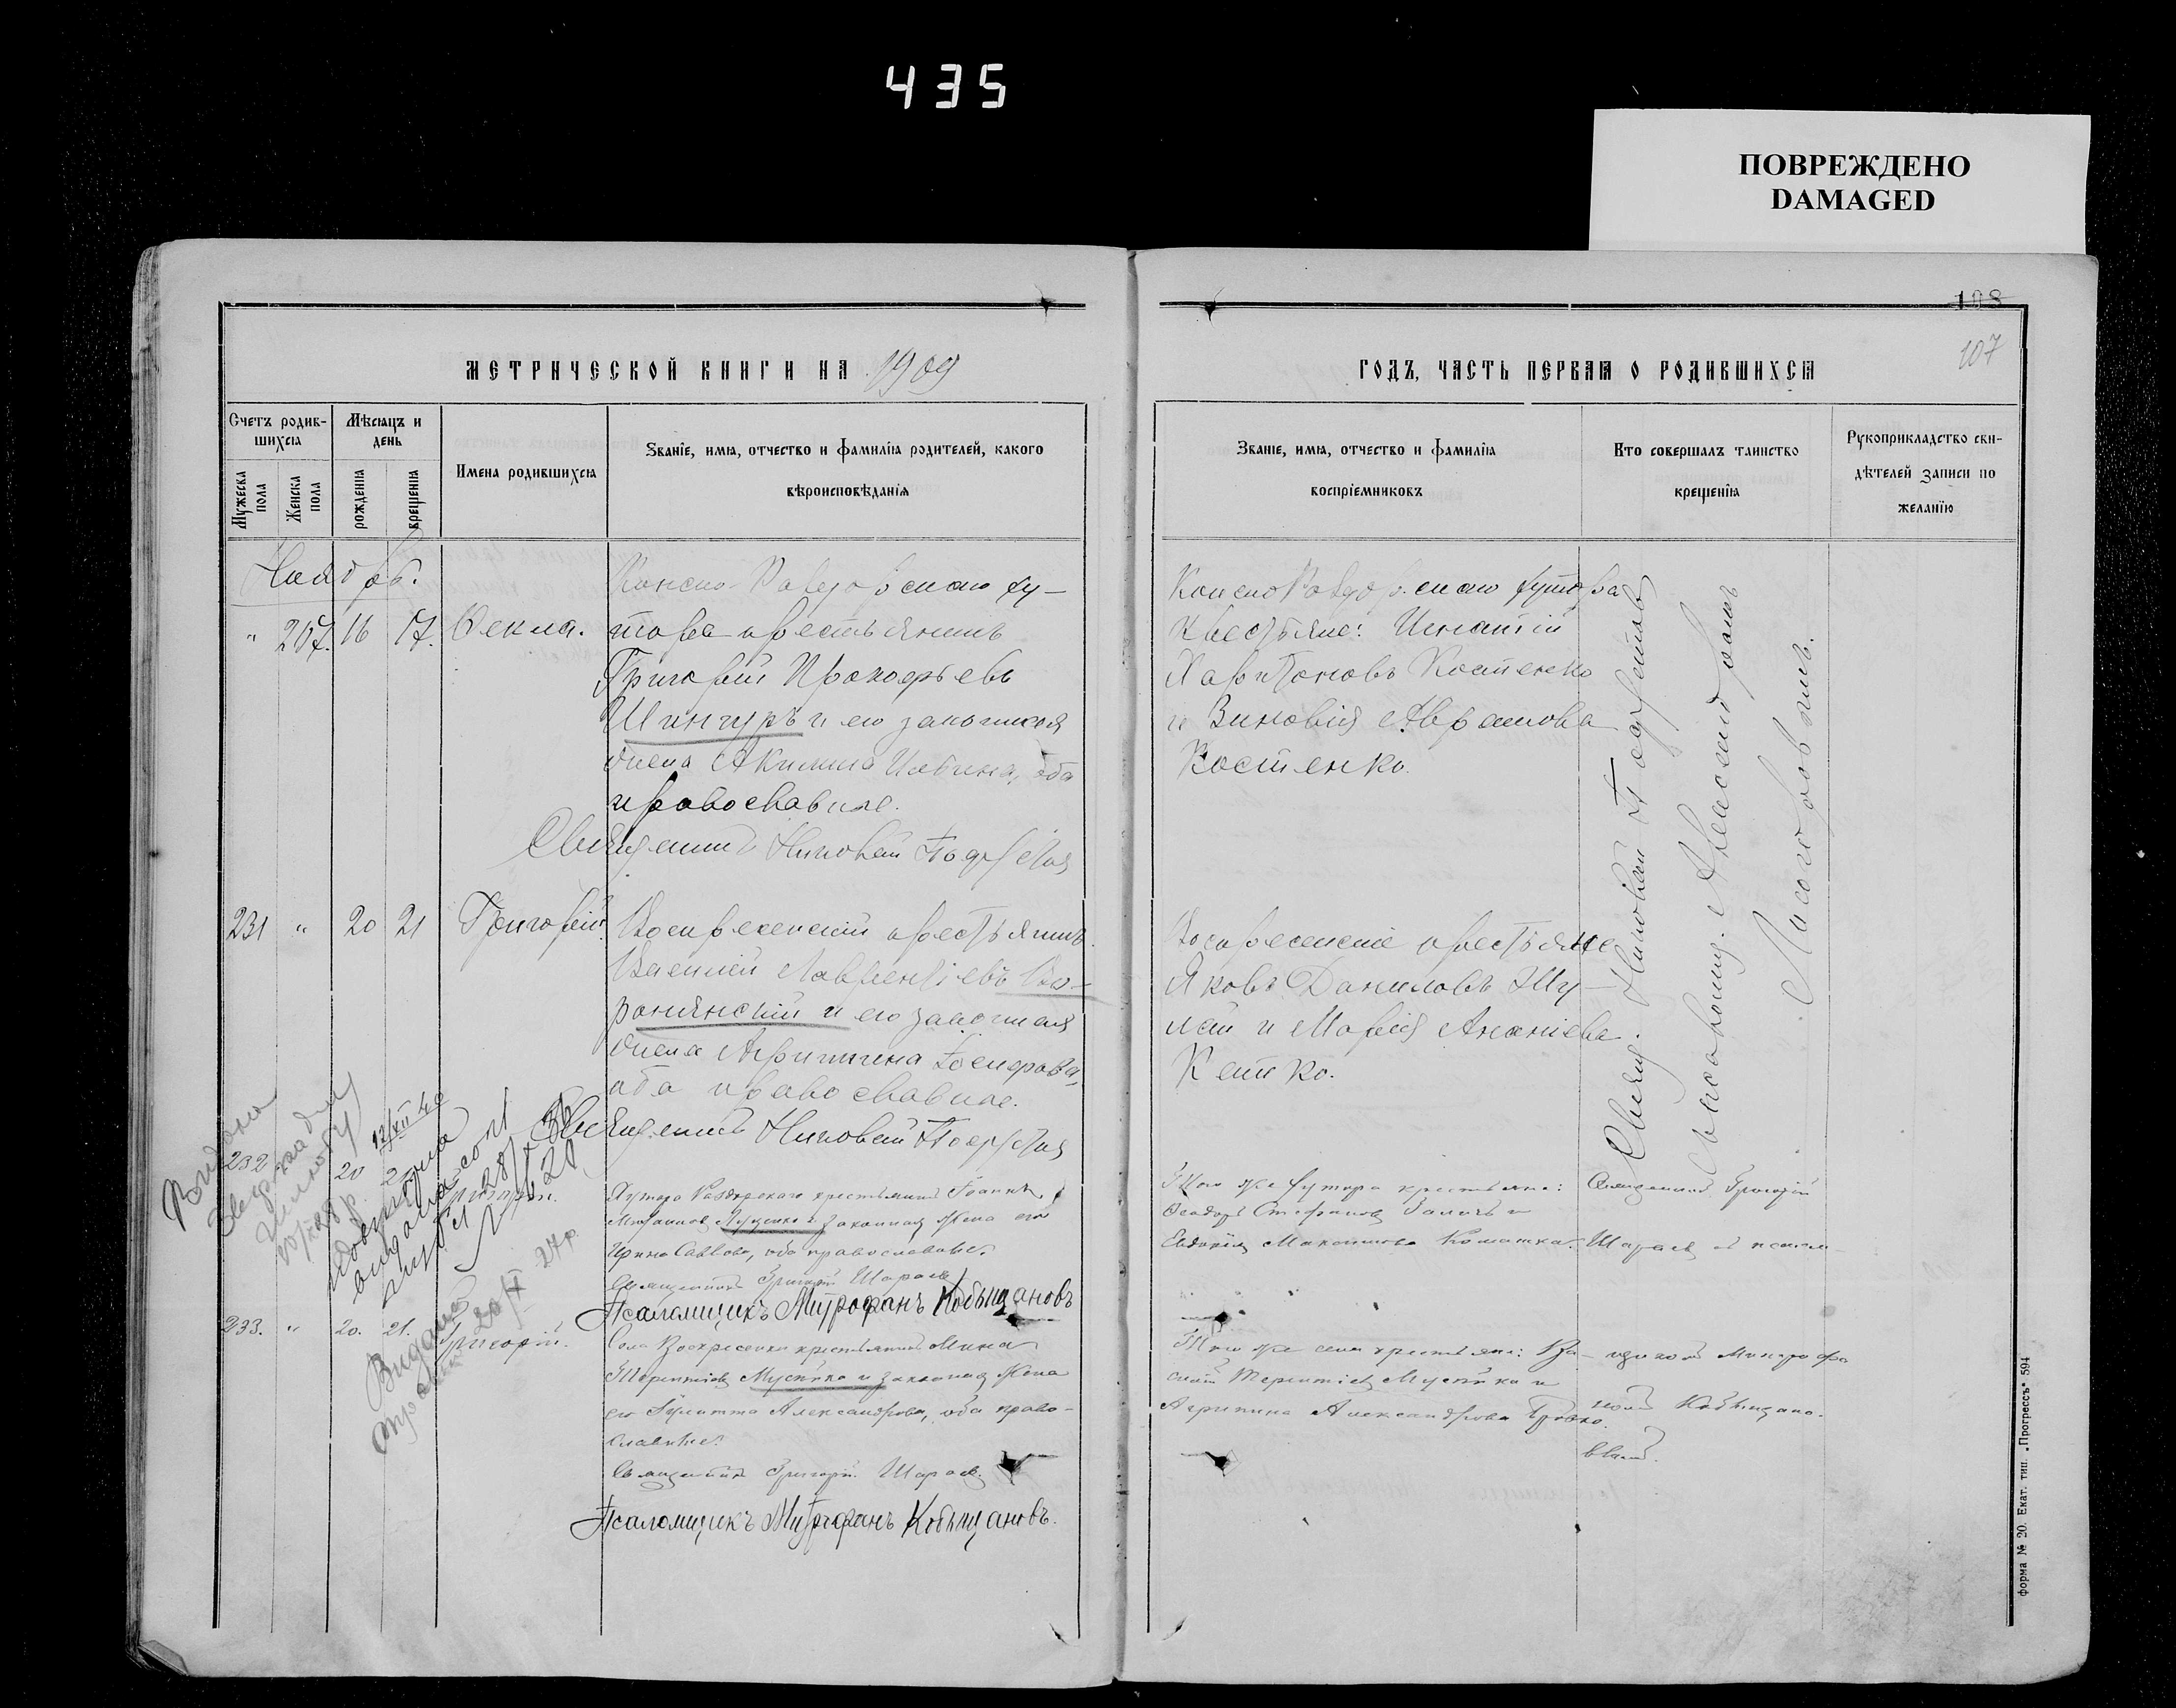 435
ПОВРЕЖДЕНО
DAMAGED
108
107
МЕТРИЧЕСКОЙ КНИГИ НА 1909
ГОДЪ, ЧАСТЬ ПЕРВАЯ О РОДИВШИХСЯ
Счетъ родив-
шихся
Мужеска пола
Женска пола
Мѣсяцъ и
день
рожденія
крещенія
Имена родившихся
Званіе, имя, отчество и фамилія родителей, какого
вѣроисповѣданія
Званіе, имя, отчество и фамилія
воспріемниковъ
Кто совершалъ таинство
крещенія
Рукоприкладство сви-
дѣтелей записи по
желанію
Ноябрь.
" 207. 16 17. Ѳекла.
Конско-Раздорскаго ху-
тора крестьянинъ
Григорій Прокофьевъ
Шингуръ и его законная
жена Акилина Ильина, оба
православные.
Священникъ Николай
Конско Раздорскаго хутора
крестьяне: Игнатій
Харитоновъ Костенко
и Зиновія Аврамова
Костенко.
231 " 20 21 Григорій.
Воскресенскій крестьянинъ
Василій Лаврентіевъ Во-
ронянскій и его законная
жена Агрипина Іосифова,
оба православные.
Священникъ Николай
Воскресенскіе крестьяне
Яковъ Даниловъ Шу-
лей и Марія Ананіева
Кошко.
Свящ. Николай
съ псаломщ. Александромъ
232 20 21 Григорій.
Хутора Раздорскаго крестьянинъ Іоаннъ
Луценко и законная жена его
Ирина Саввова, оба православные.
Священникъ Григорій Шараевъ
Псаломщикъ Митрофанъ Кобыщановъ
Того же хутора крестьяне:
Ѳеодоръ Стефановъ
Евдокія Максимова
Священникъ Григорій
Шараевъ съ псалом-
233. " 20. 21. Григорій.
Села Воскресенки крестьянинъ Мина
Терентіевъ Мусѣйко и законная жена
его Іулитта Александрова, оба право-
славные.
Священникъ Григорій Шараевъ.
Псаломщикъ Митрофанъ Кобыщановъ.
Того же села крестьяне: Ва-
силій Терентіевъ Мусѣйко и
Агрипина Александрова
щикомъ Митрофа
номъ Кобыщано-
вымъ.
17/XII 40
28/X 36
№ 20
Видано
20/X 27 р.
форма № 20. Екат. тип. „Прогрессъ" 594